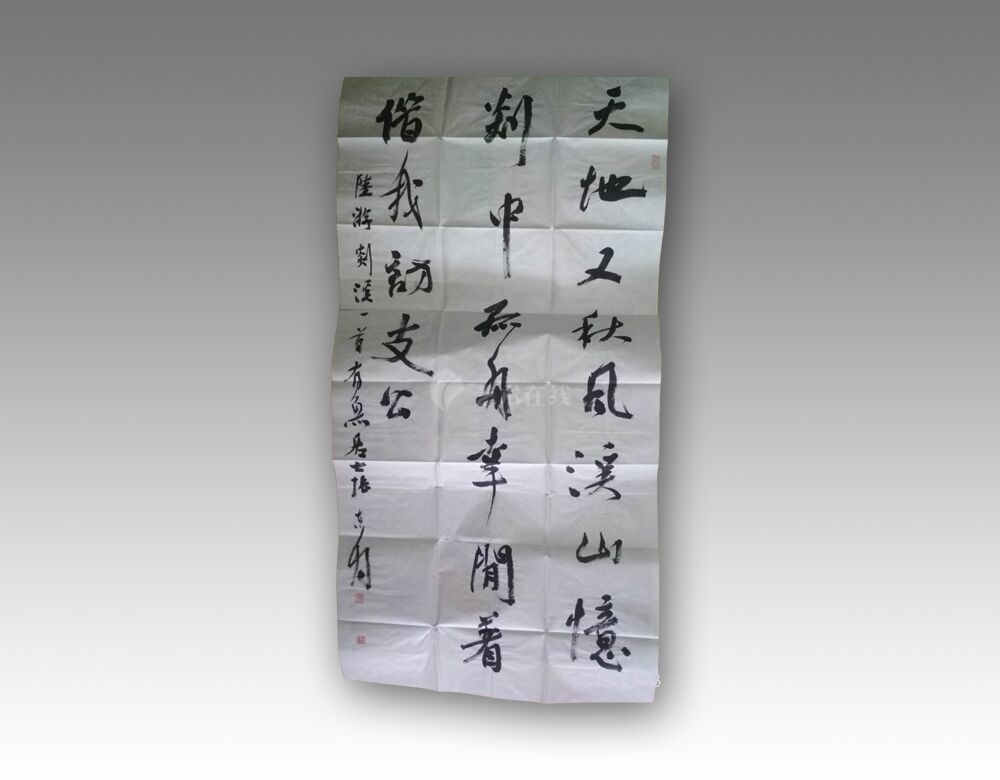 天地又秋風溪山憶
剡中孤舟幸閒著
借我訪支公
陸游剡溪一首有魚居士張
在线